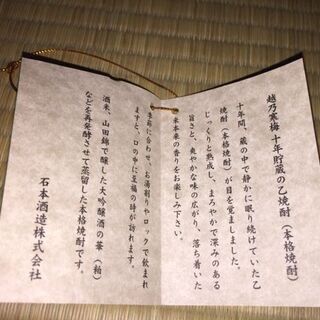 越乃寒梅十年貯蔵の乙焼酎(本格焼酎)
十年間、蔵の中で静かに眠り続けていた乙
焼酎(本格焼酎)が目を覚ましました。
じっくりと熟成し、まろやかで深みのある
旨さと、爽やかな味の広がり、落ち着いた
米本来の香りをお楽しみ下さい。
季節に合わせ、お湯割りやロックで飲まれ
ますと、口の中に至福の時が訪れます。
酒米、山田錦で醸した大吟醸酒の華(粕)
などを再発酵させて蒸留した本格焼酎です。
石本酒造株式会社